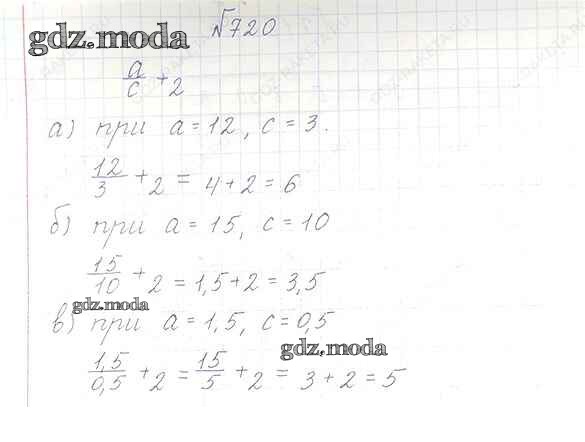 №720
gdz.moda
a/c + 2
а) при a = 12, c = 3.
12/3 + 2 = 4 + 2 = 6
б) при a = 15, c = 10
15/10 + 2 = 1,5 + 2 = 3,5
gdz.moda
в) при a = 1,5, c = 0,5
gdz.moda
1,5/0,5 + 2 = 15/5 + 2 = 3 + 2 = 5